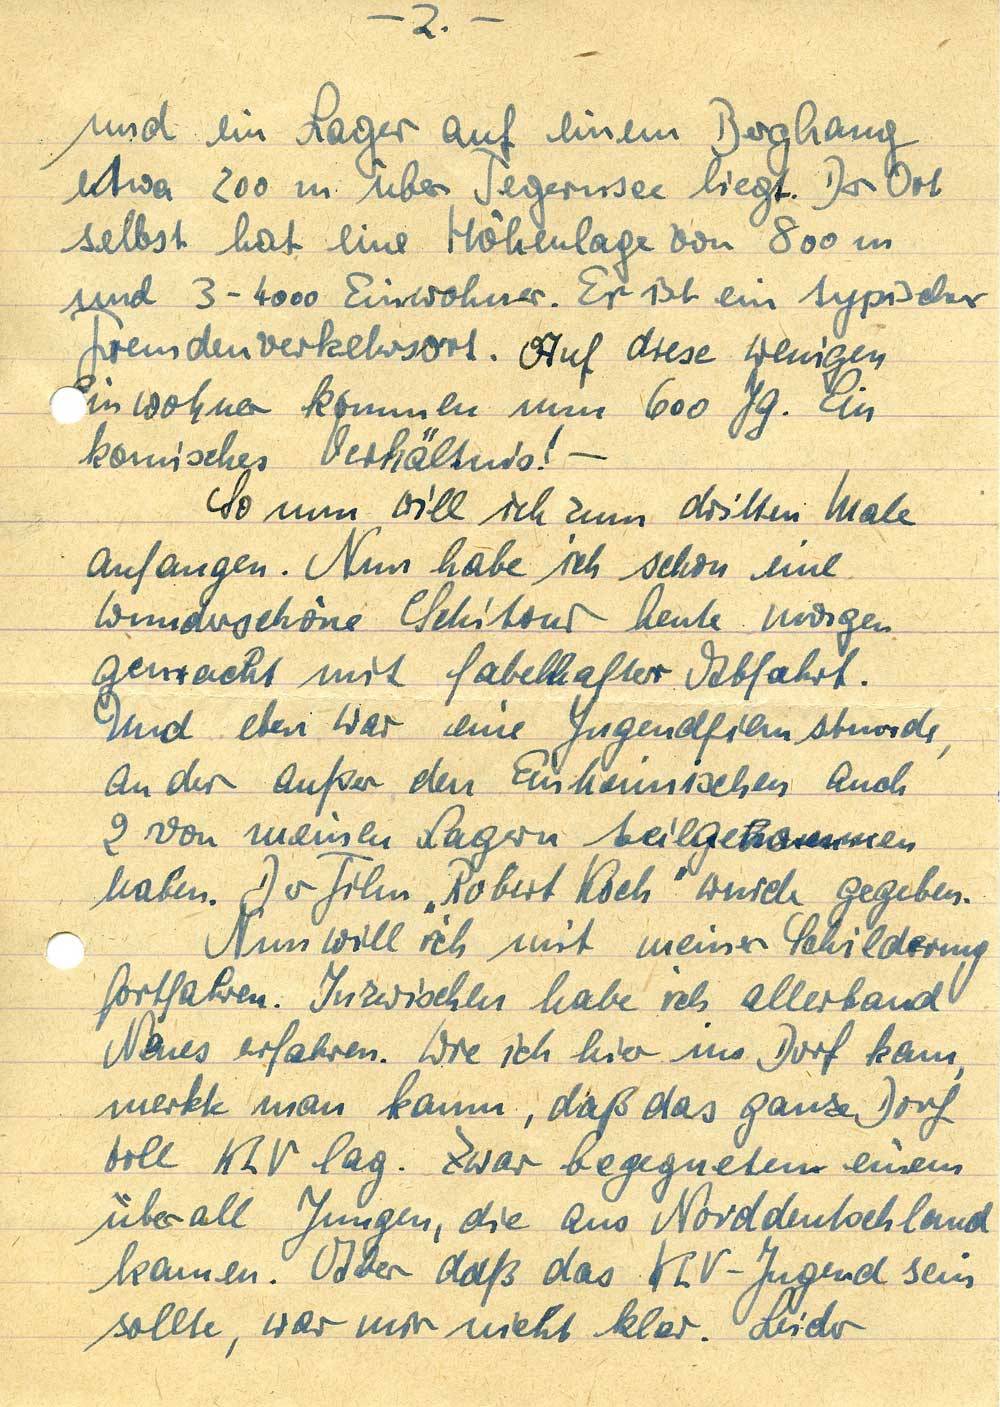 - 2. -
und ein Lager auf einem Berghang
etwa 200 m über Tegernsee liegt. Der Ort
selbst hat eine Höhenlage von 800 m
und 3-4000 Einwohner. Er ist ein typischer
Fremdenverkehrsort. Auf diese wenigen
Einwohner kommen nun 600 Jg. Ein
komisches Verhältnis! -
So nun will ich zum dritten Male
anfangen. Nun habe ich schon eine
wunderschöne Schitour heute morgen
gemacht mit fabelhafter Abfahrt.
Und eben war eine Jugendfilmstunde,
an der außer den Einheimischen auch
2 von meinen Lagern teilgenommen
haben. Der Film „Robert Koch" wurde gegeben.
Nun will ich mit meiner Schilderung
fortfahren. Inzwischen habe ich allerhand
Neues erfahren. Wie ich hier ins Dorf kam,
merkte man kaum, daß das ganze Dorf
voll KLV lag. Zwar begegneten einem
überall Jungen, die aus Norddeutschland
kamen. Aber daß das KLV-Jugend sein
sollte, war mir nicht klar. Leider